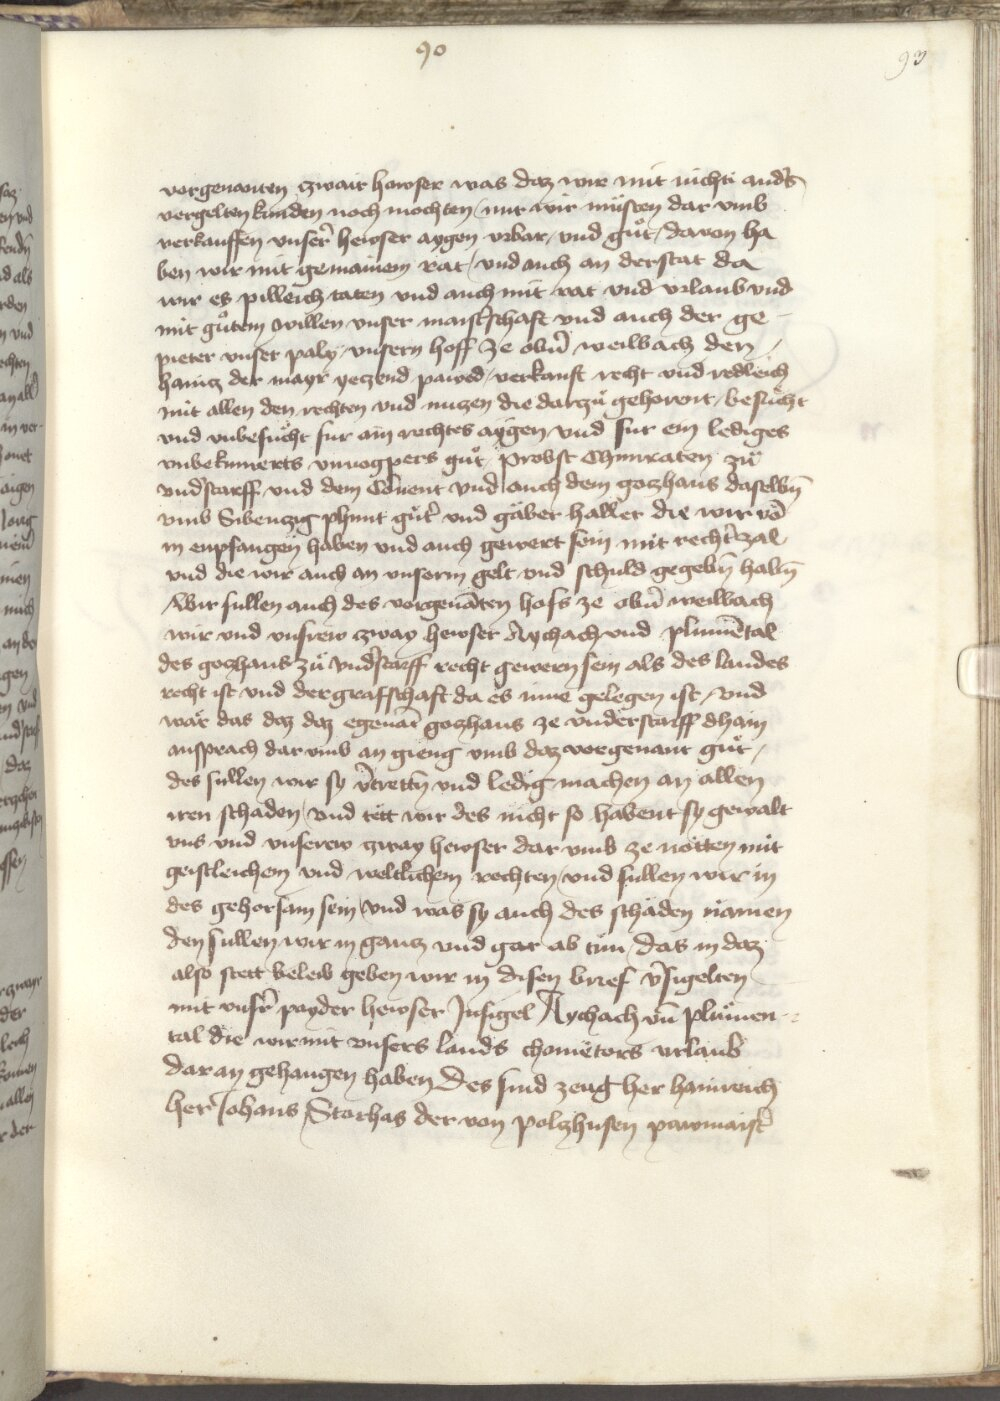 90
93
vorgenanten zwair hewser was daz wir mit nichti anders
vergelten kunden noch mochten / nur wir müsten dar vmb
verkauffen vnserr hewser aygen vrbar / vnd guͦt / davon ha
ben wir mit gemainem rat / vnd auch an der stat da
wir es pilleich taten vnd auch mit rat vnd vrlaub vnd
mit guͦtem willen vnser maisterschaft vnd auch der ge-
pieter vnser paly / vnsern hoff ze obern weilbach den /
haincz der mayr yeczend pawed / verkauft recht vnd redleich
mit allen den rechten vnd nuczen die darzuͦ gehorent / besuͦcht
vnd vnbesuͦcht fur ain rechtes aygen vnd fur ein lediges
vnbekumerts vnuogpers guͦt / Probst Chunraten zuͦ
vnderstarff vnd dem Conuent vnd auch dem goczhaus daselbn
vmb Sibenczig phunt guͦter vnd gäber haller die wir von
in enpfangen haben vnd auch gewert sein mit rechter zal
vnd die wir auch an vnserm gelt vnd schuld gegebn habn
Wir sullen auch des vorgenāten hofs ze obern weilbach
wir vnd vnsrew zway hewser Aychach vnd plumētal
des goczhaus zuͦ vnderstarff recht gewern sein als des landes
recht ist vnd der grafschaft da es inne gelegen ist / vnd
wär das daz daz egenāt goczhaus ze vnderstarff dhain
ansprach dar vmb an gieng vmb daz vorgenant guͦt /
des sullen wir sy vertrettn vnd ledig machen an allen
iren schaden / vnd tett wir des nicht so habent sy gewalt
vns vnd vnserew zway hewser dar vmb ze nötten mit
geistleichem vnd weltlichem rechten / vnd sullen wir in
des gehorsam sein / vnd was sy auch des schaden namen
den sullen wir in gancz vnd gar ab tuͦn / das in daz
also stett beleib geben wir in disen brief versigelten
mit vnserr payder hewser Insigel Aychach vn̄ plüͦmen-
tal die wir mit vnsers lands chometors vrlaub
daran gehangen haben Des sind zeug her hainreich
her Johans Storhas der von polczhusen pawmaister